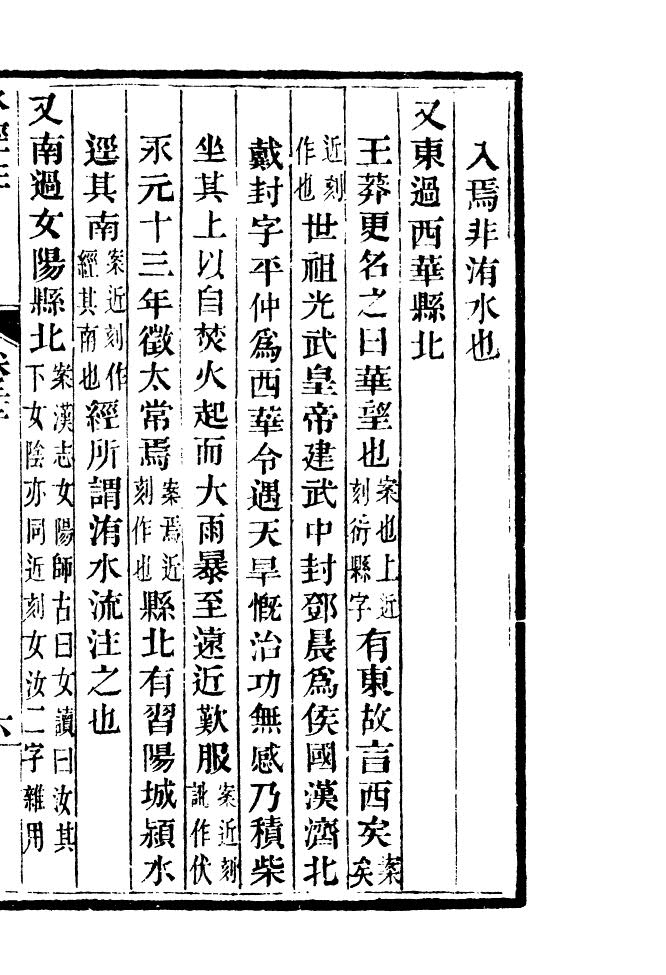 入焉非洧水也
又東過西華縣北
王莽更名之曰華望也案也上近刻衍縣字有東故言西矣案矣
近刻作也世祖光武皇帝建武中封鄧晨爲侯國漢濟北
戴封字平仲爲西華令遇天旱慨治功無感乃積柴
坐其上以自焚火起而大雨暴至遠近歎服案近刻訛作伏
永元十三年徵太常焉案焉近刻作也縣北有習陽城潁水
逕其南案近刻作經其南也經所謂洧水流注之也
又南過女陽縣北案漢志女陽師古曰女讀曰汝其下女陰亦同近刻女汝二字雜用